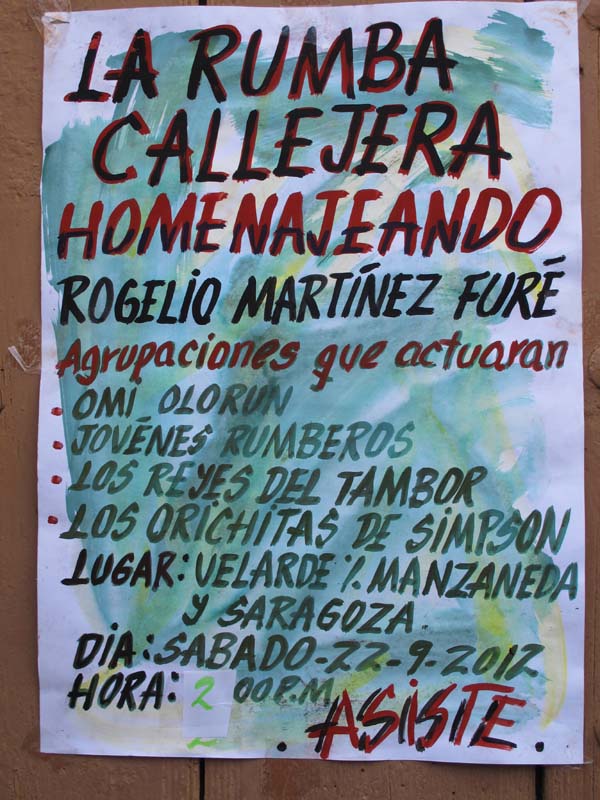 LA RUMBA
CALLEJERA
HOMENAJEANDO
ROGELIO MARTÍNEZ FURÉ
Agrupaciones que actuaran
OMI OLORUN
JOVÉNES RUMBEROS
LOS REYES DEL TAMBOR
LOS ORICHITAS DE SIMPSON
LUGAR: VELARDE %. MANZANEDA
Y SARAGOZA.
DIA: SABADO-22-9-2012
HORA: 2 00 P.M
. ASISTE.